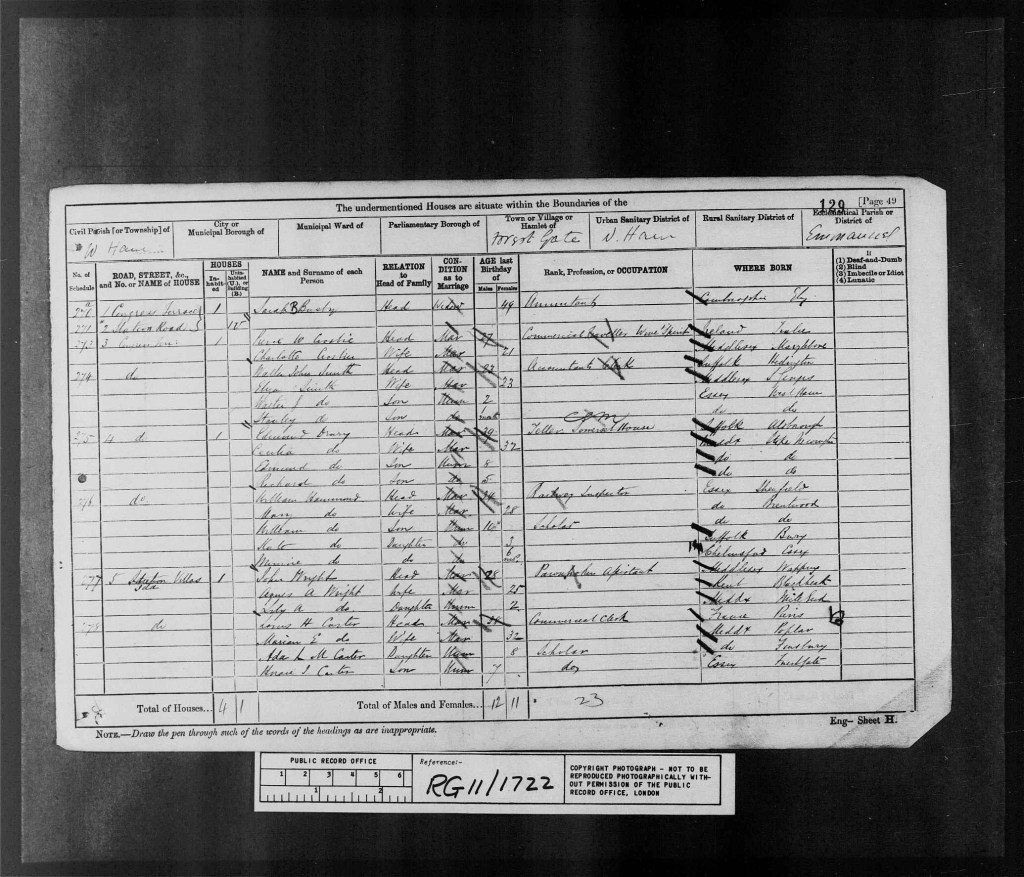 The undermentioned Houses are situate within the Boundaries of the
129 [Page 49
Civil Parish [or Township] of
City or Municipal Borough of
Municipal Ward of
Parliamentary Borough of
Town or Village or Hamlet of
Urban Sanitary District of
Rural Sanitary District of
Ecclesiastical Parish or District of
W Ham
Forest Gate
W. Ham
Emmanuel
No. of Schedule
ROAD, STREET, &c., and No. or NAME of HOUSE
HOUSES
Inhabited
Uninhabited (U.), or Building (B.)
NAME and Surname of each Person
RELATION to Head of Family
CONDITION as to Marriage
AGE last Birthday of
Males
Females
Rank, Profession, or OCCUPATION
WHERE BORN
(1) Deaf-and-Dumb
(2) Blind
(3) Imbecile or Idiot
(4) Lunatic
1 Congress Terrace 1 Sarah B Busby Head Widow 49 Annuitant Ely
2 Station Road 1U
3 1 W Head Mar 27 Commercial Traveller Wine Spirit Ireland
Charlotte Wife Mar 21 Middlesex Marylebone
274 do Walter John Smith Head Mar 23 Accountants Clerk Suffolk
Eliza Smith Wife Mar 23 Middlesex St Georges
Walter J do Son Unm 2 Essex West Ham
Stanley do Son do do do
275 4 do 1 Edmund Head Mar 39 Teller Somerset House Suffolk
Cecilia do Wife Mar 32 Middx Stoke Newington
Edmund do Son Unm 8 do do
Richard do Son do 5 do do
276 do William Hammond Head Mar 34 Railway Inspector Essex Shenfield
do Wife Mar 28 do Brentwood
William do Son Unm Scholar do do
Kate do Daughter do 3 Suffolk Bury
Minnie do do do 6 mos Chelmsford Essex
277 5 Villas 1 John Wright Head Mar 28 Pawnbroker Assistant Middlesex Wapping
Agnes A Wright Wife Mar 25 Kent Blackheath
Lily A do Daughter Unm 2 Middx Mile End
278 do Louis H Carter Head Mar 38 Commercial Clerk France Paris
Marian E do Wife Mar 32 Middx Poplar
Ada L M Carter Daughter Unm 8 Scholar do Finsbury
Horace J Carter Son Unm 7 do Essex
Total of Houses... 4 1
Total of Males and Females... 12 11
23
Eng— Sheet H.
NOTE.—Draw the pen through such of the words of the headings as are inappropriate.
PUBLIC RECORD OFFICE
1 2 3 4 5 6
1 2
Reference:-
RG 11/1722
COPYRIGHT PHOTOGRAPH - NOT TO BE
REPRODUCED PHOTOGRAPHICALLY WITH-
OUT PERMISSION OF THE PUBLIC
RECORD OFFICE, LONDON